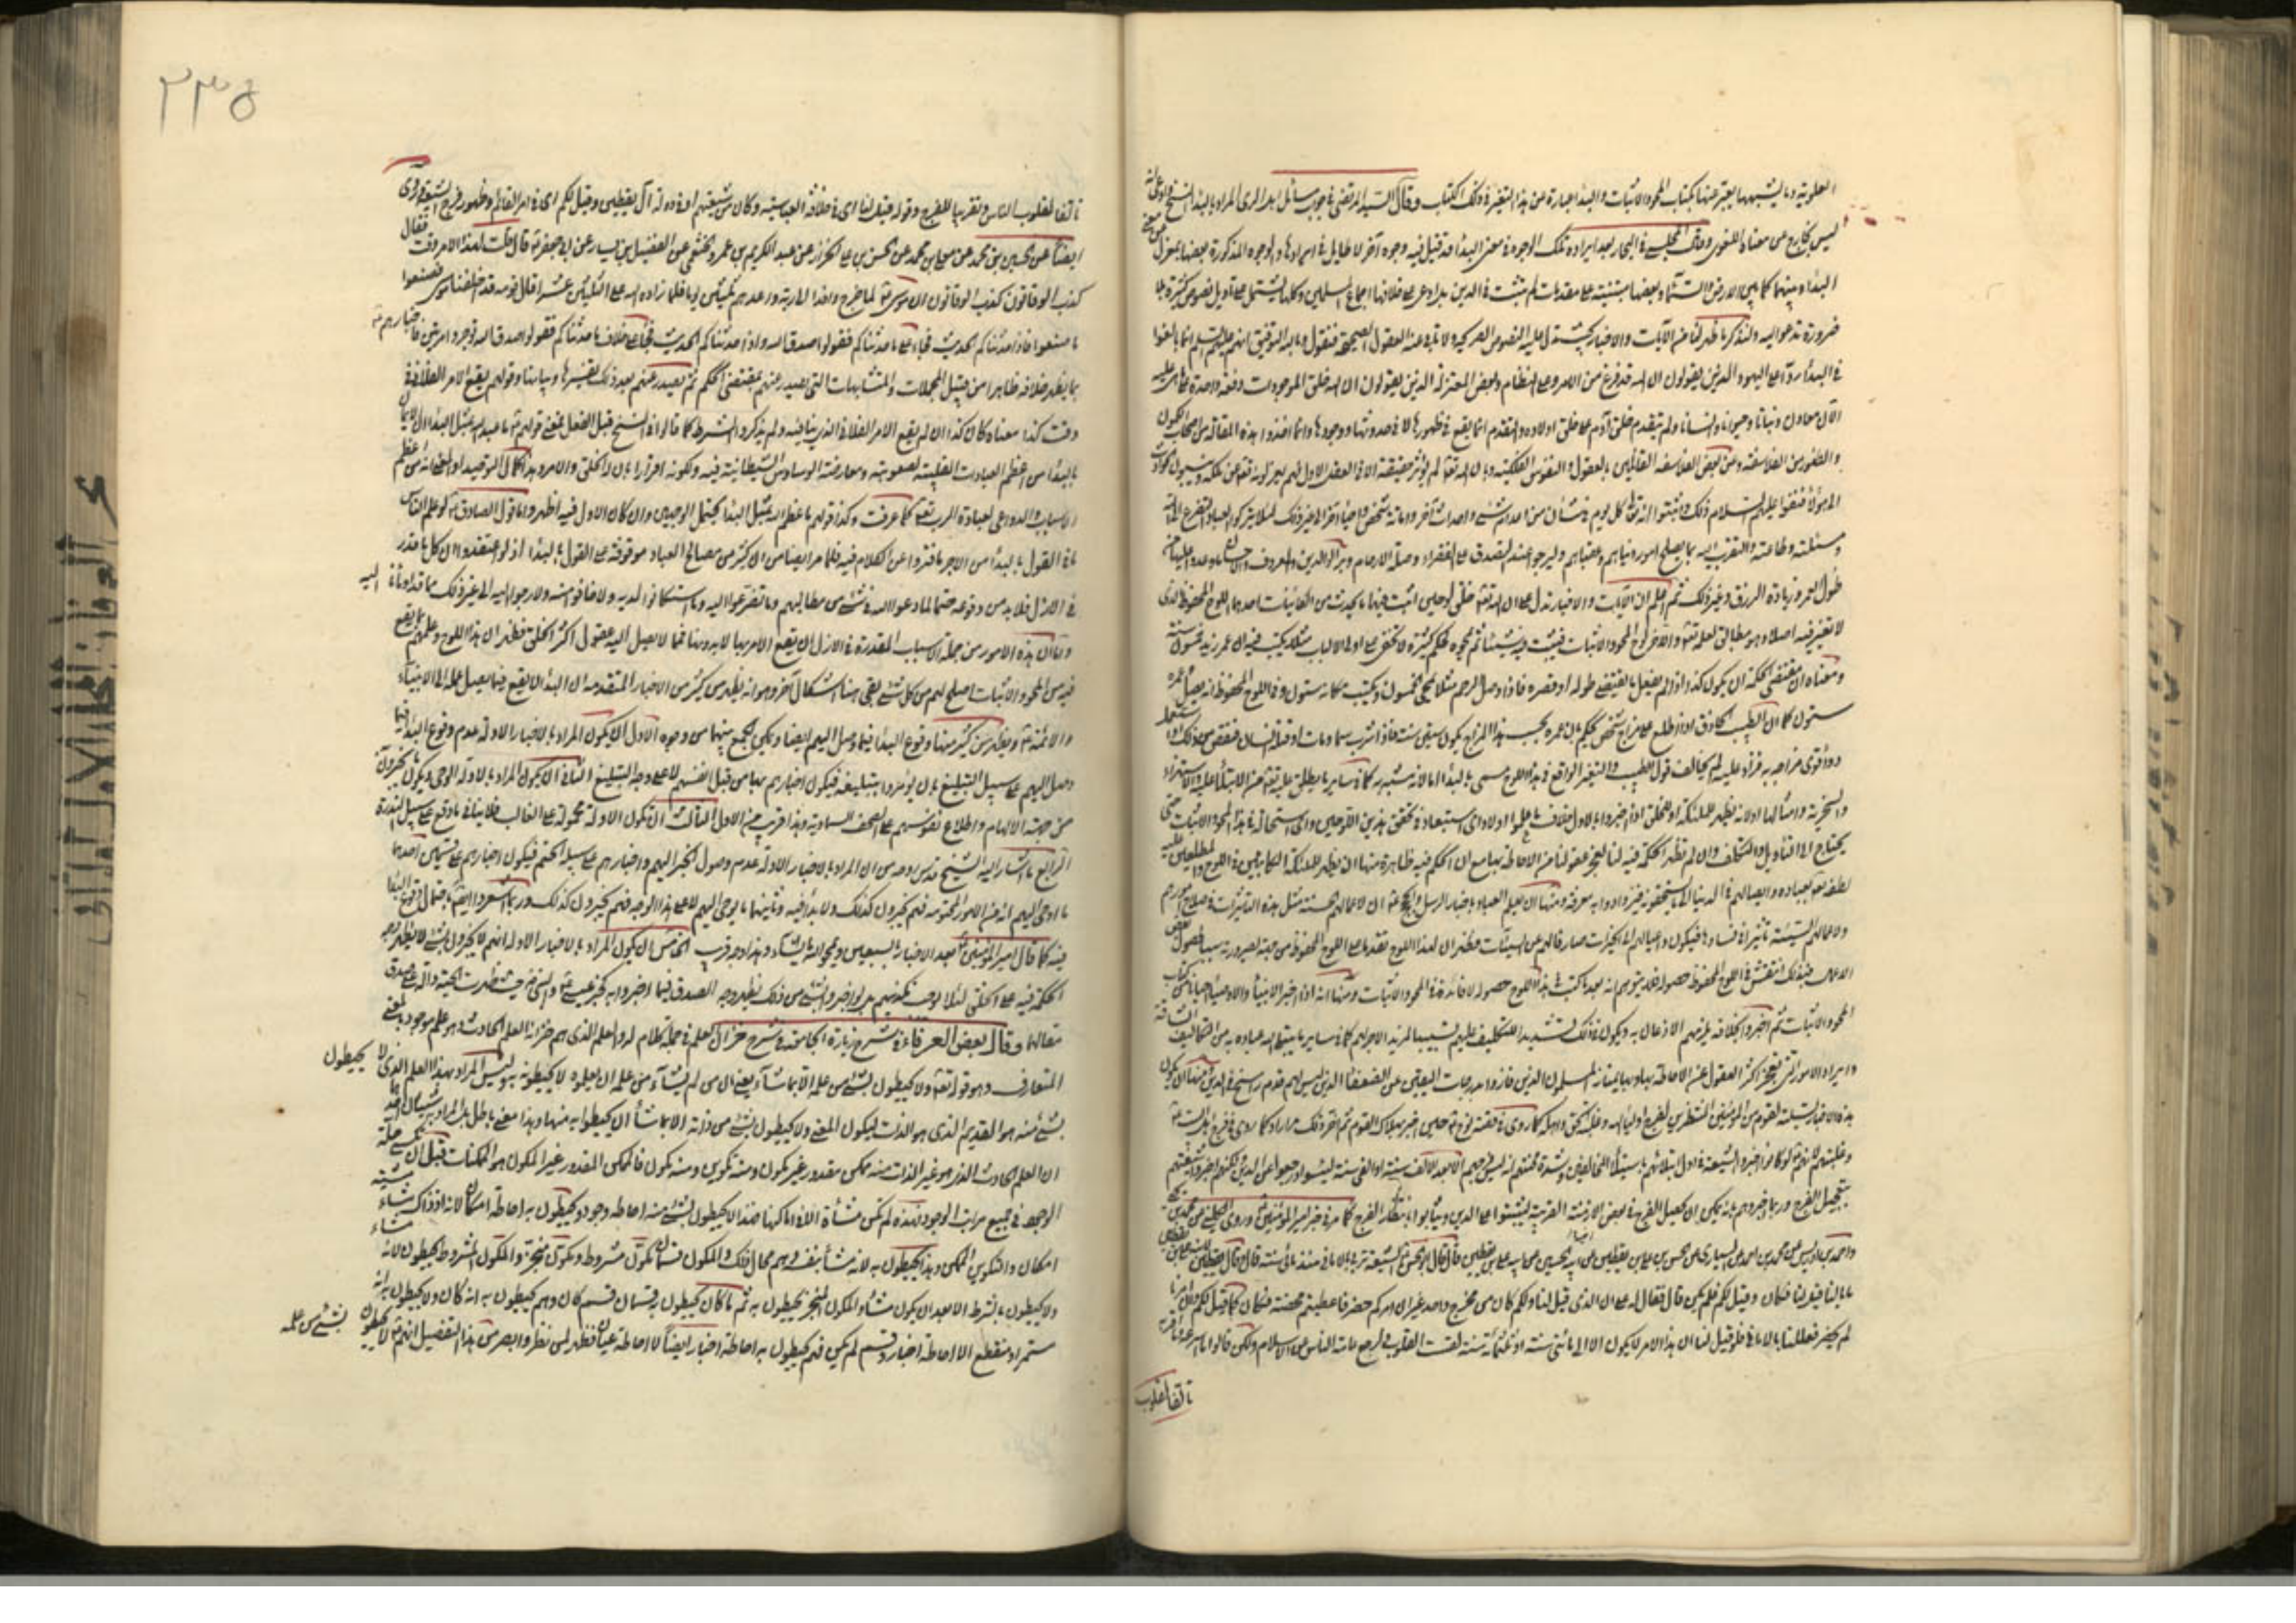 العلوية وما يشبهها يعبر عنها بكتاب المحو والاثبات والبداء عبارة عن هذا التغير في ذلك الكتاب وقال السيد المرتضى في جواب مسائل اهل الري المراد بالبداء النسخ
ليس بخارج عن معناه اللغوي وقال المجلسي في البحار بعد ايراده تلك الوجوه في معنى البداء قد قيل فيه وجوه آخر لا طايل في ايرادها والوجوه المذكورة بعضها بمعزل عن معنى
البداء وبينهما كما بين الارض والسماء وبعضها مبتنية على مقدمات لم تثبت في الدين بل ادعي على خلافها اجماع المسلمين وكلها يشتمل على تأويل نصوص كثيرة بلا
ضرورة تدعو اليه ولنذكر ما ظهر لنا من الآيات والاخبار بحيث تدل عليه النصوص الصريحة ولا تأبى عنه العقول الصحيحة فنقول وبالله التوفيق انهم عليهم السلام انما بالغوا
في البداء ردا على اليهود الذين يقولون ان الله قد فرغ من الامر وعلى النظام وبعض المعتزلة الذين يقولون ان الله خلق الموجودات دفعة واحدة على ما هي عليه
الآن معادن ونباتا وحيوانا وانسانا ولم يتقدم خلق آدم على خلق اولاده والتقدم انما يقع في ظهورها لا في حدوثها ووجودها وانما اخذوا هذه المقالة من اصحاب الكمون
والظهور من الفلاسفة وعلى بعض الفلاسفة القائلين بالعقول والنفوس الفلكية وبان الله تعالى لم يؤثر حقيقة الا في العقل الاول فهم يعزلونه تعالى عن ملكه وينسبون الحوادث
الى هؤلاء فنفوا عليهم السلام ذلك واثبتوا انه تعالى كل يوم في شأن من اعدام شيء واحداث آخر واماتة شخص واحياء آخر الى غير ذلك لئلا يتركوا العباد التضرع الى الله
ومسئلته وطاعته والتقرب اليه بما يصلح امور دنياهم وعقباهم وليرجوا عند التصدق على الفقراء وصلة الارحام وبر الوالدين والمعروف والاحسان ما وعدوا عليها من
طول العمر وزيادة الرزق وغير ذلك ثم اعلم ان الآيات والاخبار تدل على ان الله تعالى خلق لوحين اثبت فيهما ما يحدث من الكائنات احدهما اللوح المحفوظ الذي
لا تغير فيه اصلا وهو مطابق لعلمه تعالى والآخر لوح المحو والاثبات فيثبت فيه شيئا ثم يمحوه لحكم كثيرة لا تخفى على اولى الالباب مثلا يكتب فيه ان عمر زيد خمسون سنة
ومعناه ان مقتضى الحكمة ان يكون كذا اذا لم يفعل ما يقتضي طوله او قصره فاذا وصل الرحم مثلا يمحى الخمسون ويكتب مكانه ستون وفي اللوح المحفوظ انه يصل وعمره
ستون كما ان الطبيب الحاذق اذا اطلع على مزاج شخص يحكم بان عمره بحسب هذا المزاج يكون ستين سنة فاذا شرب سما ومات او قتله انسان فنقص من ذلك او استعمل
دواء قوي مزاجه به فزاد عليه لم يخالف قول الطبيب والتغير الواقع في هذا اللوح مسمى بالبداء اما لانه مشبه به كما في ساير ما يطلق عليه تعالى من الابتلاء والاستهزاء
والسخرية وامثالها او لانه يظهر للملائكة او للخلق اذا اخبروا بالاول خلاف ما علموا اولا واي استبعاد في تحقق هذين اللوحين واي استحالة في هذا المحو والاثبات حتى
يحتاج الى التأويل والتكلف وان لم تظهر الحكمة فيه لنا لعجز عقولنا عن الاحاطة بها مع ان الحكم فيه ظاهرة منها ان يظهر للملائكة الكاتبين في اللوح والمطلعين عليه
لطفه تعالى بعباده وايصالهم في الدنيا الى ما يستحقونه فيزدادوا به معرفة ومنها ان يعلم العباد باخبار الرسل والحجج ان لاعمالهم الحسنة مثل هذه التأثيرات في صلاح امورهم
ولاعمالهم السيئة تأثيرا في فسادها فيكون داعيا لهم الى الخيرات صارفا لهم عن السيئات فظهر ان لهذا اللوح تقدما على اللوح المحفوظ من جهة لصيرورته سببا لحصول بعض
الاعمال فبذلك انتقش في اللوح المحفوظ حصوله فلا يتوهم انه بعد ما كتب في هذا اللوح حصوله لا فائدة في المحو والاثبات ومنها انه اذا اخبر الانبياء والاوصياء احيانا من كتاب
المحو والاثبات ثم اخبروا بخلافه يلزمهم الاذعان به ويكون في ذلك تشديد للتكليف عليهم تسبيبا لمزيد الاجر لهم كما في ساير ما يبتلي الله عباده به من التكاليف الشاقة
وايراد الامور التي تعجز اكثر العقول عن الاحاطة بها وبها يمتاز المسلمون الذين فازوا بدرجات اليقين عن الضعفاء الذين ليس لهم قدم راسخ في الدين ومنها ان يكون
هذه الاخبار تسلية لقوم من المؤمنين المنتظرين لفرج اولياء الله وغلبة الحق واهله كما روي في قصة نوح حين اخبر بهلاك القوم ثم اخر ذلك مرارا وكما روي في فرج اهل البيت
وغلبتهم لانهم لو كانوا اخبروا الشيعة في اول ابتلائهم باستيلاء المخالفين وشدة محنتهم انه ليس فرجهم الا بعد الف سنة او الفي سنة ليئسوا ورجعوا عن الدين ولكنهم اخبروا شيعتهم
بتعجيل الفرج وربما اخبروهم بانه يمكن ان يحصل الفرج في بعض الازمنة القريبة ليثبتوا على الدين ويثابوا بانتظار الفرج كما مر في خبر امير المؤمنين وروى الكليني عن محمد بن يحيى
واحمد بن ادريس عن محمد بن احمد عن السياري عن الحسن بن علي بن يقطين عن اخيه الحسين عن ابيه علي بن يقطين قال قال ابو الحسن الشيعة تربى بالاماني منذ مائتي سنة قال وقال يقطين لابنه علي بن يقطين
ما بالنا قيل لنا فكان وقيل لكم فلم يكن قال فقال له علي ان الذي قيل لنا ولكم كان من مخرج واحد غير ان امركم حضر فاعطيتم محضه فكان كما قيل لكم وان امرنا
لم يحضر فعللنا بالاماني فلو قيل لنا ان هذا الامر لا يكون الا الى مائتي سنة او ثلثمائة سنة لقست القلوب ولرجع عامة الناس عن الاسلام ولكن قالوا ما اسرعه وما اقربه
تالفا لقلوب
٢٣٥
تالفا لقلوب الناس وتقريبا للفرج وقوله قيل لنا اي في خلافة العباسية وكان من شيعتهم او في دولة آل يقطين وقيل لكم اي في امر القائم وظهور فرج الشيعة وروى
ايضا عن الحسين بن محمد عن معلى بن محمد عن الحسن بن علي الخزاز عن عبد الكريم بن عمرو الخثعمي عن الفضيل بن يسار عن ابي جعفر قال قلت لهذا الامر وقت فقال
كذب الوقاتون كذب الوقاتون ان موسى لما خرج وافدا الى ربه واعدهم ثلثين يوما فلما زاده الله على الثلثين عشرا قال قومه قد اخلفنا موسى فصنعوا
ما صنعوا فاذا حدثناكم الحديث فجاء على ما حدثناكم فقولوا صدق الله واذا حدثناكم الحديث فجاء على خلاف ما حدثناكم فقولوا صدق الله توجروا مرتين فاخبارهم
بما يظهر خلافه ظاهرا من قبيل المجملات والمتشابهات التي تصدر عنهم بمقتضى الحكم ثم يصدر عنهم بعد ذلك تفسيرها وبيانها وقولهم يقع الامر الفلاني في
وقت كذا معناه كان كذا ان لم يقع الامر الفلاني الذي ينافيه ولم يذكروا الشرط كما قالوا في النسخ قبل الفعل فمعنى قولهم ما عبد الله بمثل البداء ان الايمان
بالبداء من اعظم العبادات القلبية لصعوبته ومعارضة الوساوس الشيطانية فيه ولكونه اقرارا بان له الخلق والامر وهذا كمال التوحيد او المعنى انه من اعظم
الاسباب والدواعي لعبادة الرب تعالى كما عرفت وكذا قولهم ما عظم الله بمثل البداء يحتمل الوجهين وان كان الاول فيه اظهر واما قول الصادق لو علم الناس
ما في القول بالبداء من الاجر ما فتروا عن الكلام فيه فلما مر ايضا من ان اكثر من مصالح العباد موقوفة على القول بالبداء اذ لو اعتقدوا ان كل ما قدر
في الازل فلابد من وقوعه حتما لما دعوا الله في شيء من مطالبهم وما تضرعوا اليه وما استكانوا لديه ولا خافوا منه ولا رجوا اليه الى غير ذلك مما قد اومأنا اليه
واما ان هذه الامور من جملة الاسباب المقدرة في الازل ان يقع الامر بها لا بدونها فمما لا يصل اليه عقول اكثر الخلق فظهر ان هذا اللوح وعلمهم بما يقع
فيه من المحو والاثبات اصلح لهم من كل شيء بقي هنا اشكال آخر وهو انه يظهر من كثير من الاخبار المتقدمة ان البداء لا يقع فيما يصل علمه الى الانبياء
والائمة ويظهر من كثير منها وقوع البداء فيما وصل اليهم ايضا ويمكن الجمع بينهما من وجوه الاول ان يكون المراد بالاخبار الاولة عدم وقوع البداء فيما
وصل اليهم على سبيل التبليغ بان يؤمروا بتبليغه فيكون اخبارهم بها من قبل انفسهم لا على وجه التبليغ الثاني ان يكون المراد بالاولة الوحي ويكون ما يخبرون
من جهة الالهام واطلاع نفوسهم على الصحف السماوية وهذا قريب من الاول الثالث ان تكون الاولة محمولة على الغالب فلا ينافي ما وقع على سبيل الندرة
الرابع ما اشار اليه الشيخ قدس روحه من ان المراد بالاخبار الاولة عدم وصول الخبر اليهم واخبارهم على سبيل الحتم فيكون اخبارهم على قسمين احدهما
ما اوحي اليهم انه من الامور المحتومة فهم يخبرون كذلك ولا بداء فيه وثانيهما ما يوحى اليهم لا على هذا الوجه فهم يخبرون كذلك وربما اشعروا ايضا باحتمال وقوع البداء
فيه كما قال امير المؤمنين بعد الاخبار بالسبعين ويمحو الله ما يشاء وهذا وجه قريب الخامس ان يكون المراد بالاخبار الاولة انهم لا يخبرون بشيء لا يظهر وجه
الحكمة فيه على الخلق لئلا يوجب تكذيبهم بل لو اخبروا بشيء من ذلك يظهر وجه الصدق فيما اخبروا به كخبر عيسى والنبي حيث ظهرت الحية دالة على صدق
مقالهما وقال بعض العرفاء في شرح زيارة الجامعة في شرح خزان العلم في جملة كلام له والعلم الذي هم خزانه العلم الحادث وهو علم موجود بالمعنى
المتعارف وهو قوله تعالى ولا يحيطون بشيء من علمه الا بما شاء يعني ان من لم يشأ من علمه ان يعلموه لا يحيطون به وليس المراد بهذا العلم الذي لا يحيطون
بشيء منه هو القديم الذي هو الذات ليكون المعنى ولا يحيطون بشيء من ذاته الا بما شاء ان يحيطوا به منها وهذا معنى باطل بل المراد به
ان العلم الحادث الذي هو غير الذات منه ممكن مقدور غير مكون ومنه تكوين ومنه مكون فالممكن المقدور غير المكون هو الممكنات قبل ان
الوجود في جميع مراتب الوجود فهذه لم تكن مشاءة الا في امكانها فهذا لا يحيطون بشيء منه احاطة وجود ويحيطون به احاطة امكان لانه اذ ذاك شاء
امكان والتكوين الممكن وهذا يحيطون به لانه مشاء بنفسه وهم محال ذلك والمكون قسمان مكون مشروط ومكون منجز والمكون المشروط يحيطون لانه مشاء
ولا يحيطون بالشرط الا بعد ان يكون مشاء والمكون المنجز يحيطون به ثم ما كان يحيطون به قسمان قسم كان وهم يحيطون به انه كان ولا يحيطون به انه
مستمر او منقطع الا احاطة اخبار وقسم لم يكن فهم يحيطون به احاطة اخبار ايضا لا احاطة عيان فظهر لمن نظر وابصر من هذا التفصيل انهم لا يحيطون بشيء من علمه